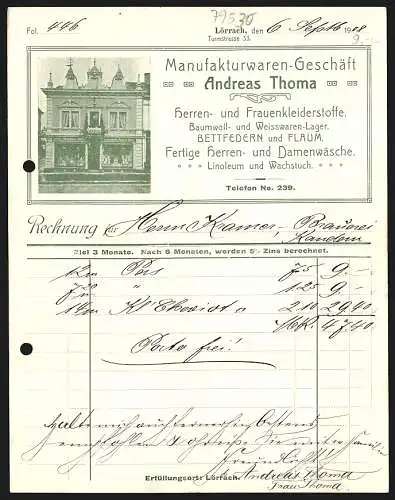 79530
Fol. 446
Lörrach, den 6 Septb 1908
Turmstrasse 33.
9.-
Manufakturwaren-Geschäft
Andreas Thoma
Herren- und Frauenkleiderstoffe.
Baumwoll- und Weisswaren-Lager.
BETTFEDERN und FLAUM.
Fertige Herren- und Damenwäsche.
Linoleum und Wachstuch.
Telefon No. 239.
Rechnung für Herrn Kramer - Brauerei
Kandern
Ziel 3 Monate. Nach 6 Monaten, werden 5% Zins berechnet.
12 m 75 9.-
7 20 " 1.25 9.-
14 m 2.10 29.40
Mk. 47.40
Porto frei!
Halte mich auch fernerhin bestens
empfohlen &
Freundlichst!
Erfüllungsort: Lörrach. Andreas Thoma
Frau Thoma